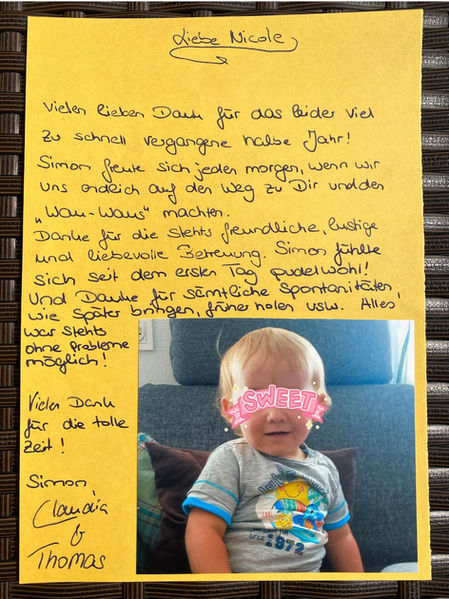 Liebe Nicole,
Vielen lieben Dank für das leider viel
zu schnell vergangene halbe Jahr!
Simon freute sich jeden morgen, wenn wir
uns endlich auf den Weg zu Dir und den
„Wau-Waus" machten.
Danke für die stehts freundliche, lustige
und liebevolle Betreuung. Simon fühlte
sich seit dem ersten Tag pudelwohl!
Und Danke für sämtliche Spontanitäten,
wie später bringen, früher holen usw. Alles
war stehts
ohne Probleme
möglich!
Vielen Dank
für die tolle
Zeit!
Simon,
Claudia
&
Thomas
SWEET
since
1972